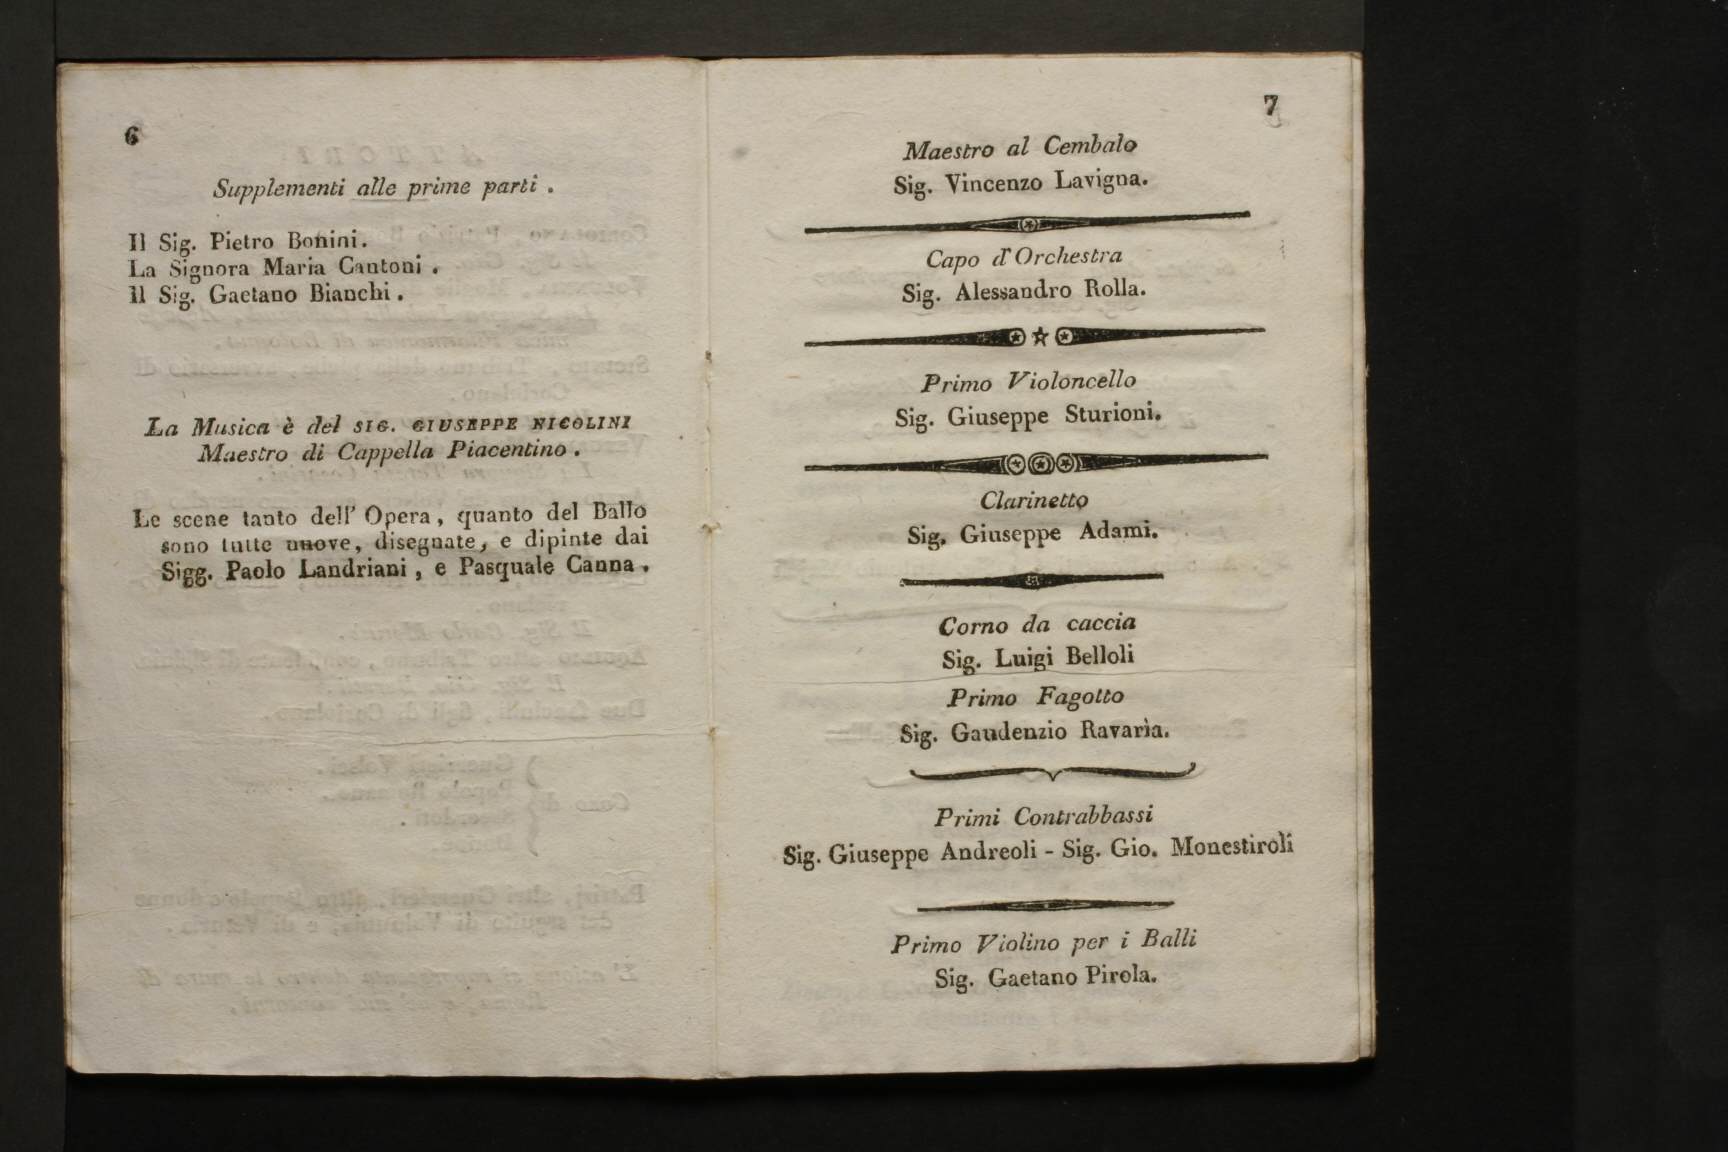 6
Supplementi alle prime parti .
Il Sig. Pietro Bonini.
La Signora Maria Cantoni .
Il Sig. Gaetano Bianchi .
La Musica è del SIG. GIUSEPPE NICOLINI
Maestro di Cappella Piacentino .
Le scene tanto dell' Opera, quanto del Ballo
sono tutte nuove, disegnate, e dipinte dai
Sigg. Paolo Landriani, e Pasquale Canna .
7
Maestro al Cembalo
Sig. Vincenzo Lavigna.
Capo d'Orchestra
Sig. Alessandro Rolla.
Primo Violoncello
Sig. Giuseppe Sturioni.
Clarinetto
Sig. Giuseppe Adami.
Corno da caccia
Sig. Luigi Belloli
Primo Fagotto
Sig. Gaudenzio Ravarìa.
Primi Contrabbassi
Sig. Giuseppe Andreoli - Sig. Gio. Monestiroli
Primo Violino per i Balli
Sig. Gaetano Pirola.